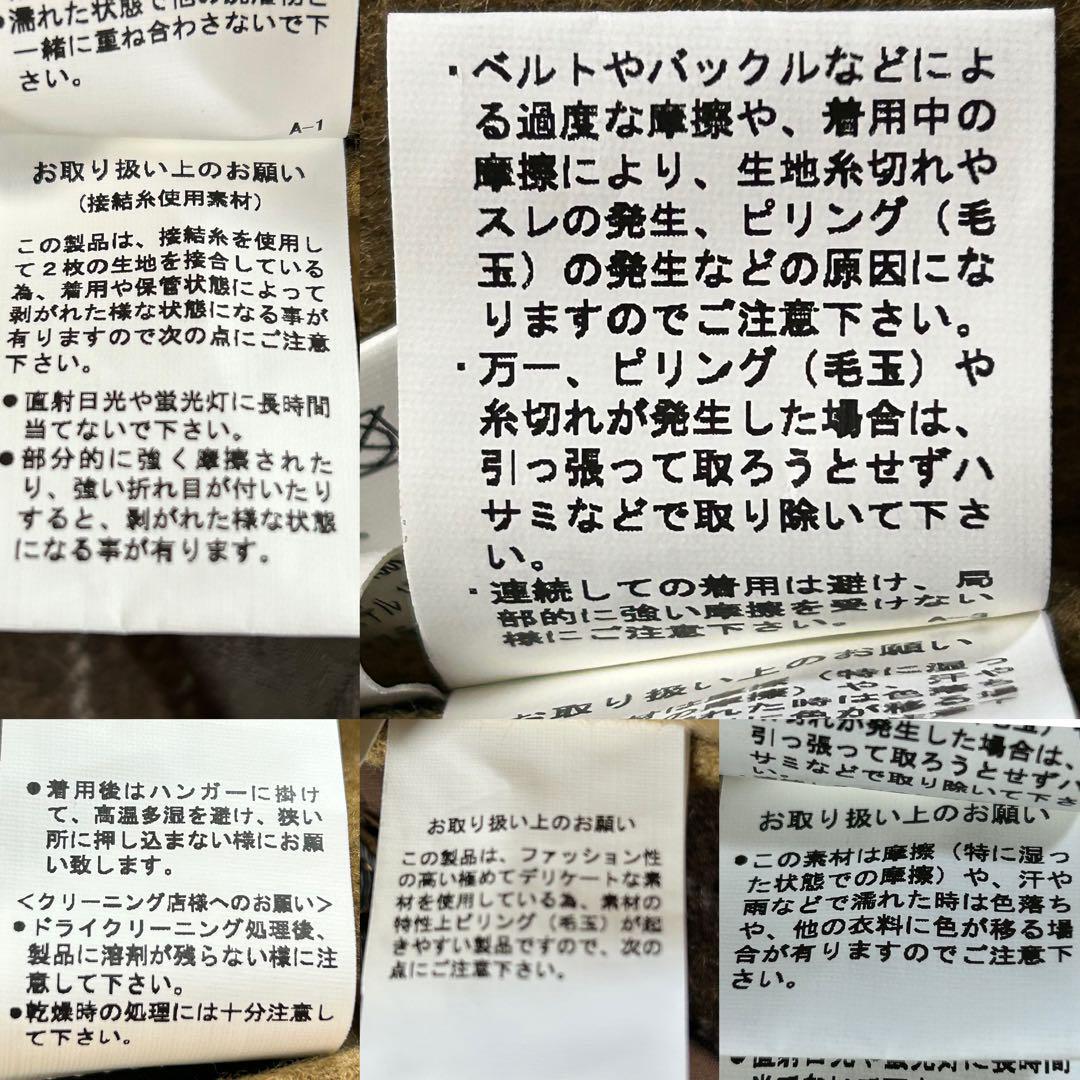 濡れた状態で他の洗濯物と
一緒に重ね合わさないで下
さい。
A-1
お取り扱い上のお願い
(接結糸使用素材)
この製品は、接結糸を使用し
て2枚の生地を接合している
為、着用や保管状態によって
剥がれた様な状態になる事が
有りますので次の点にご注意
下さい。
●直射日光や蛍光灯に長時間
当てないで下さい。
●部分的に強く摩擦された
り、強い折れ目が付いたり
すると、剥がれた様な状態
になる事が有ります。
・ベルトやバックルなどによ
る過度な摩擦や、着用中の
摩擦により、生地糸切れや
スレの発生、ピリング(毛
玉)の発生などの原因にな
りますのでご注意下さい。
・万一、ピリング(毛玉)や
糸切れが発生した場合は、
引っ張って取ろうとせずハ
サミなどで取り除いて下さ
い。
・連続しての着用は避け、局
部的に強い摩擦を受けない
様にご注意下さい。
お取り扱い上のお願い
(特に湿っ
や、汗や
た時は色落ち
色が移る場
●着用後はハンガーに掛け
て、高温多湿を避け、狭い
所に押し込まない様にお願
い致します。
<クリーニング店様へのお願い>
●ドライクリーニング処理後、
製品に溶剤が残らない様に注
意して下さい。
●乾燥時の処理には十分注意し
て下さい。
お取り扱い上のお願い
この製品は、ファッション性
の高い極めてデリケートな素
材を使用している為、素材の
特性上ピリング(毛玉)が起
きやすい製品ですので、次の
点にご注意下さい。
切れが発生した場合は、
引っ張って取ろうとせずハ
サミなどで取り除いて下さ
い。
お取り扱い上のお願い
●この素材は摩擦(特に湿っ
た状態での摩擦)や、汗や
雨などで濡れた時は色落ち
や、他の衣料に色が移る場
合が有りますのでご注意下
さい。
●直射日光や蛍光灯に長時間